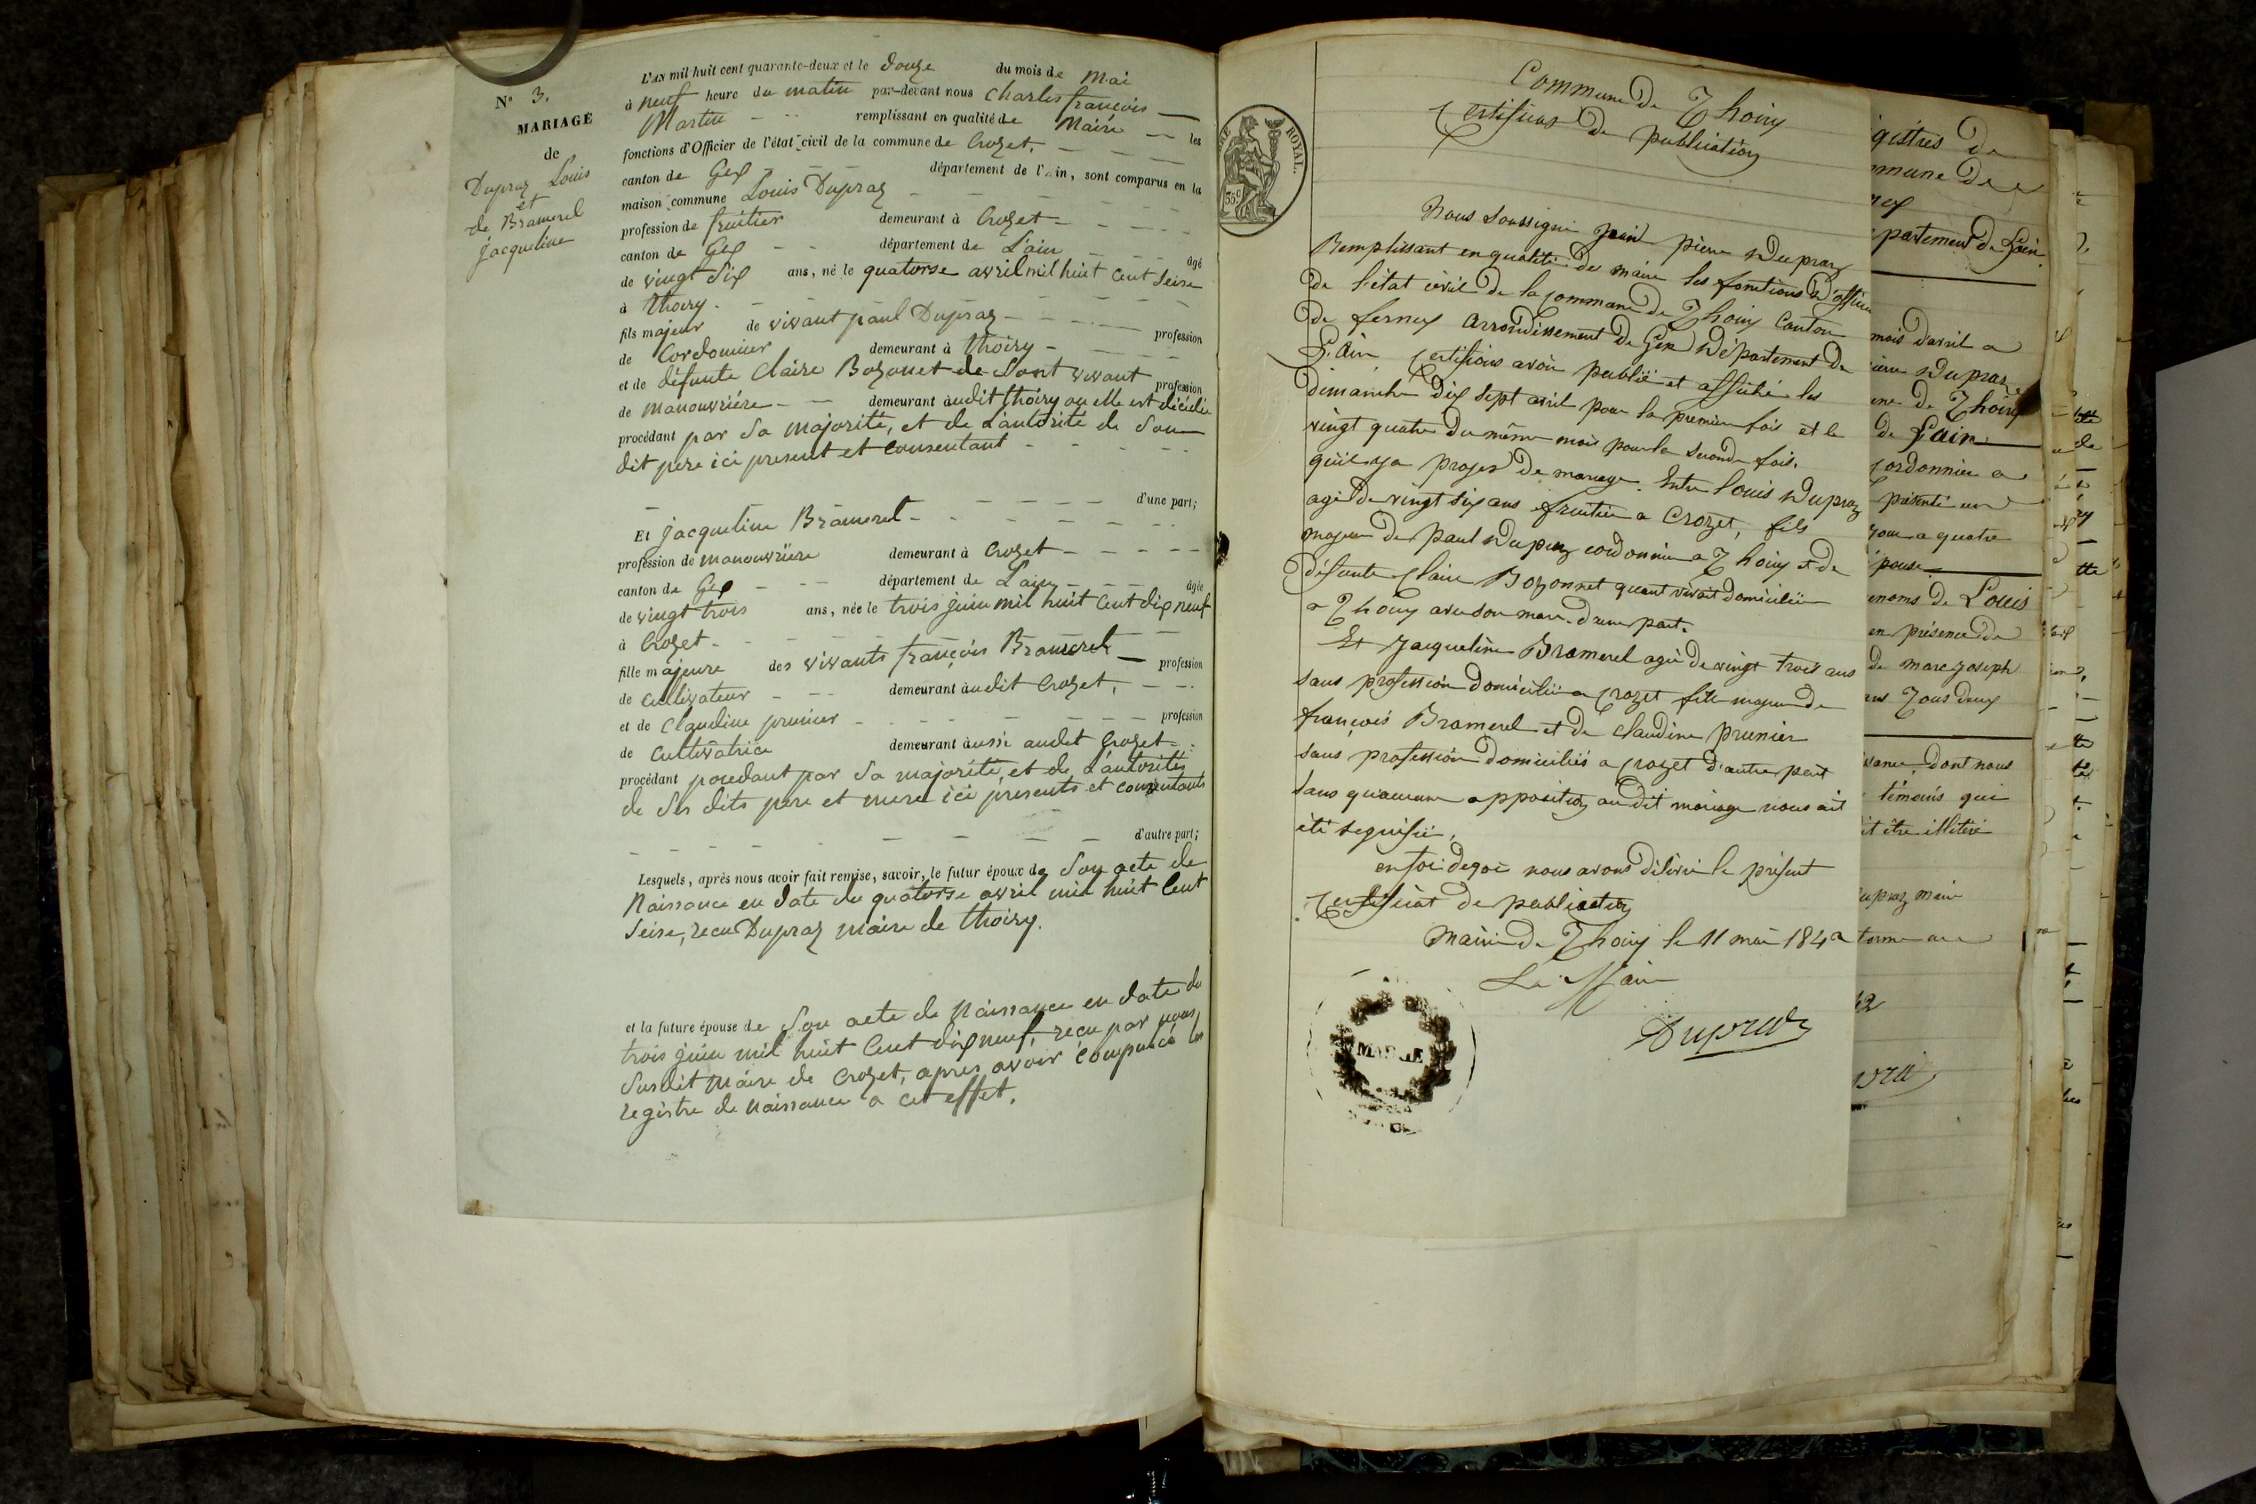 N° 3.
MARIAGE
de
Dupraz Louis
et
de Bramerel
Jacqueline
L'AN mil huit cent quarante-deux et le douze du mois de Mai
à neuf heure du matin par-devant nous Charles françois
Martin remplissant en qualité de Maire les
fonctions d'Officier de l'état civil de la commune de Crozet.
canton de Gex département de l'Ain, sont comparus en la
maison commune Louis Dupraz
profession de fruitier demeurant à Crozet
canton de Gex département de L'ain âgé
de vingt Six ans, né le quatorse avril mil huit Cent Seise
à Thoiry.
fils majeur de vivant paul Dupraz profession
de Cordonnier demeurant à Thoiry
et de défunte Claire Bozonet de Sont vivant profession
de Manouvrière demeurant audit thoiry ou elle est décédée
procédant par Sa majorité, et de L'autorité de Son
dit pere ici present et consentant
d'une part;
Et Jacqueline Bramerel
profession de manouvrière demeurant à Crozet
canton de Gex département de L'ain âgée
de vingt trois ans, née le trois juin mil huit Cent dix neuf
à Crozet
fille majeure des vivants françois Bramerel profession
de Cultivateur demeurant audit Crozet,
et de Claudine prunier profession
de Cultivatrice demeurant aussi audit Crozet
procédant procedant par Sa majorité, et de L'autorités
de Ses dits pere et mere ici presents et consentants
d'autre part;
Lesquels, après nous avoir fait remise, savoir, le futur époux de Son acte de
Naissance en date du quatorse avril mil huit Cent
Seise, recu Dupraz Maire de Thoiry.
et la future épouse de Son acte de Naissance en date du
trois juin mil huit Cent dix neuf, recu par nous
Susdit Maire de Crozet, apres avoir compulcé les
registre de Naissance a cet effet.
ROYAL.
35c
Commune De Thoiry
Certificat De publication
Nous Soussigné Jean pierre Dupraz
Remplissant en qualité de maire les fonctions D'officier
De l'état civil De la Commune De Thoiry Canton
De ferney arrondissement De Gex Département De
L'ain Certifions avoir publié et affiché les
Dimanche Dix Sept avril pour la premiere fois et le
vingt quatre Du même mois pour la seconde fois.
qu'il y a projet De mariage. Entre Louis Dupraz
agé De vingt six ans fruitier a Crozet, fils
majeur De Paul Dupraz cordonnier a Thoiry et De
Défunte Claire Bozonnet quant vivait Domiciliée
a Thoiry avec son mari. D'une part.
Et Jacqueline Bramerel agée De vingt trois ans
sans profession Domiciliée a Crozet fille majeure De
françois Bramerel et De Claudine prunier
sans profession Domiciliés a Crozet D'autre part
sans qu'aucune opposition au Dit mariage nous ait
été segnifié,
en foi de qoi nous avons Délivré le présent
Certificat De publication
Mairie De Thoiry le 11 mai 1842
Le Maire
Dupraz
MAIRIE
De
partement De L'ain.
mois d'avril a
Dupraz
De Thoiry
De L'ain
Cordonnier a
présenté un
jour a quatre
épouse
De Louis
en présence De
De marc joseph
ans Tous Deux
Dont nous
témoins qui
être illitéré
Dupraz maire